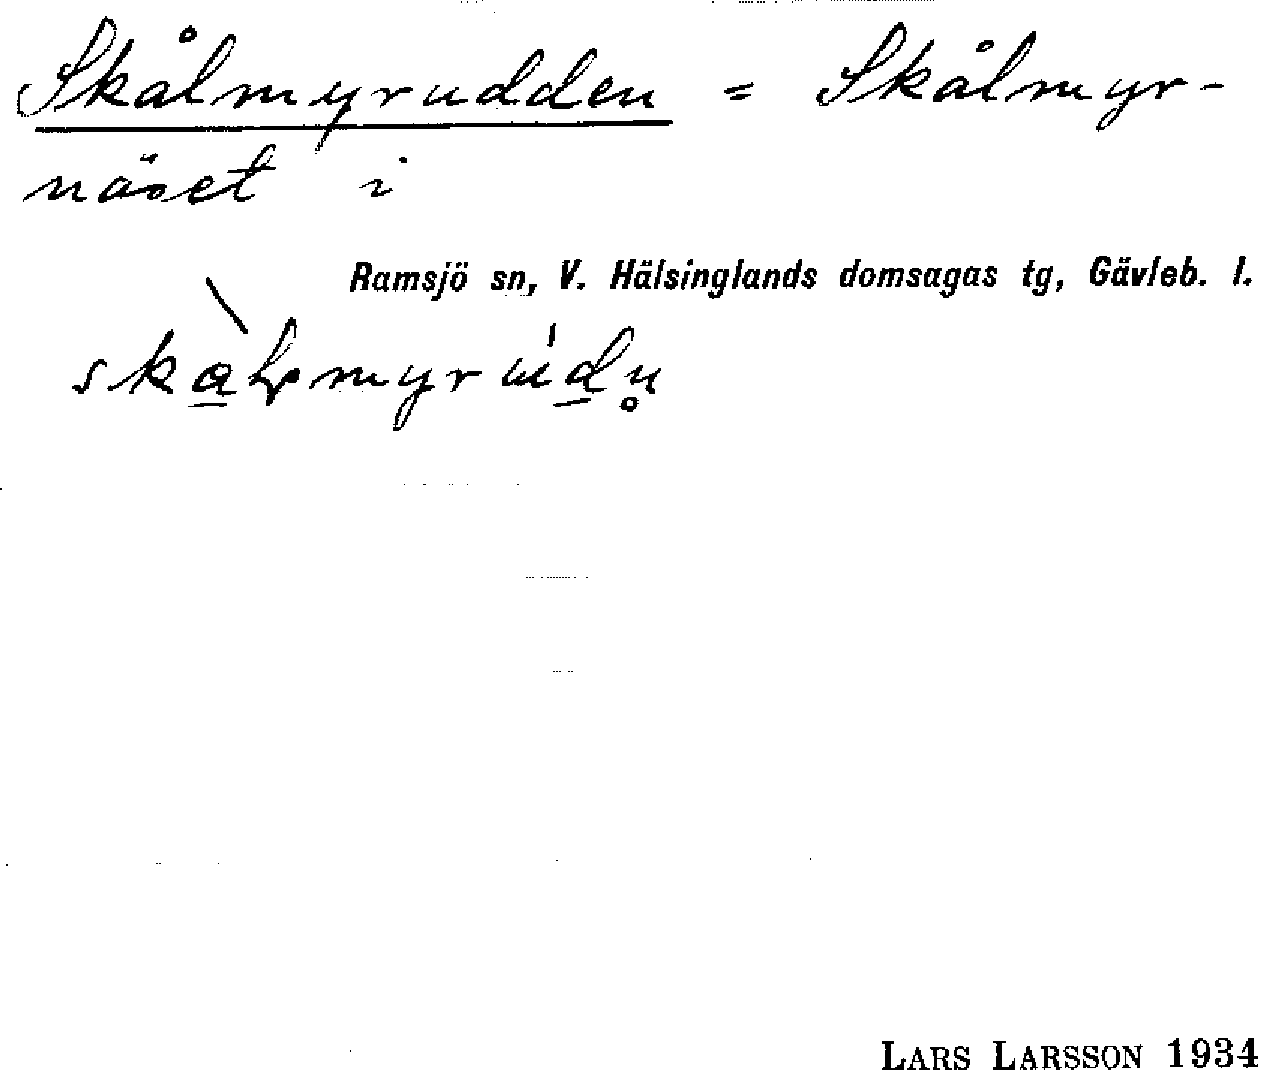 Skålmyrudden = Skålmyr-
näset i
Ramsjö sn, V. Hälsinglands domsagas tg, Gävleb. l.
LARS LARSSON 1934